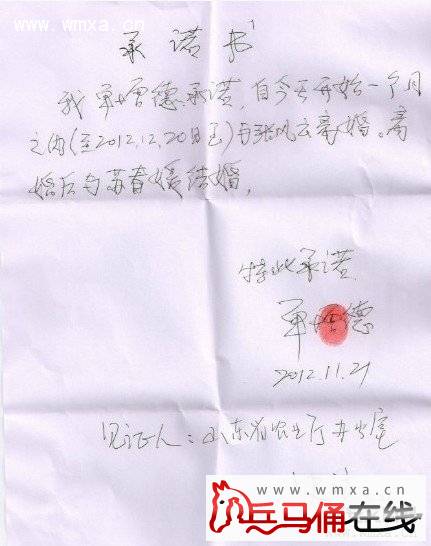 www.wmxa.cn
承诺书
我单增德承诺,自今天开始一个月
之内(至2012.12.20日至)与张风云离婚。离
婚后与苏春媛结婚。
特此承诺
单增德
2012.11.21
见证人:山东省农业厅办公室
www.wmxa.cn
兵马俑在线